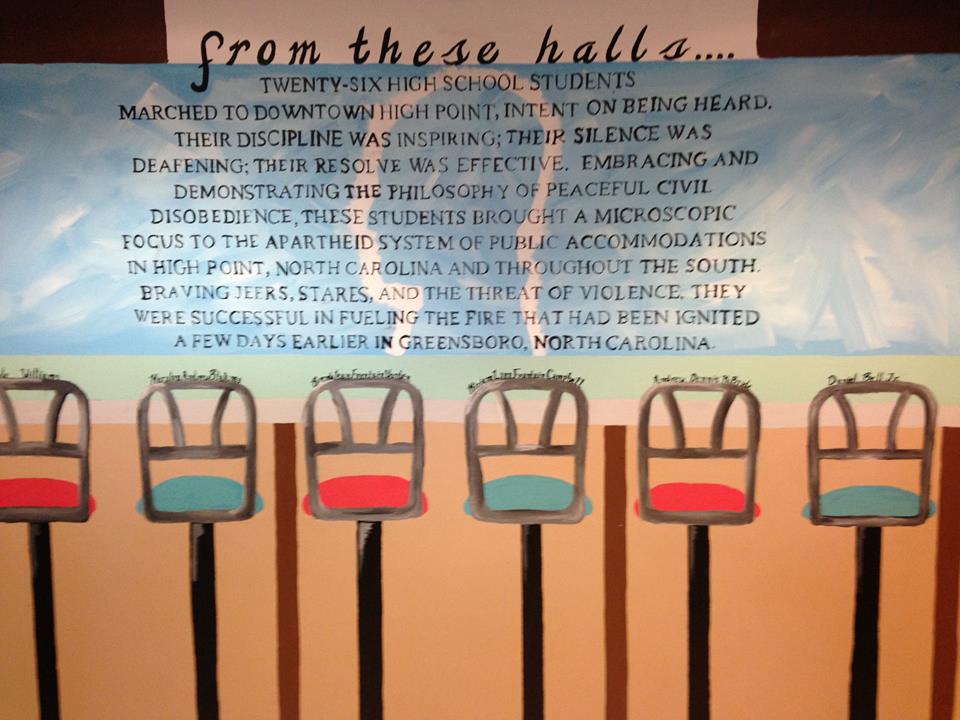 from these halls....
TWENTY-SIX HIGH SCHOOL STUDENTS
MARCHED TO DOWNTOWN HIGH POINT, INTENT ON BEING HEARD.
THEIR DISCIPLINE WAS INSPIRING; THEIR SILENCE WAS
DEAFENING; THEIR RESOLVE WAS EFFECTIVE. EMBRACING AND
DEMONSTRATING THE PHILOSOPHY OF PEACEFUL CIVIL
DISOBEDIENCE, THESE STUDENTS BROUGHT A MICROSCOPIC
FOCUS TO THE APARTHEID SYSTEM OF PUBLIC ACCOMMODATIONS
IN HIGH POINT, NORTH CAROLINA AND THROUGHOUT THE SOUTH.
BRAVING JEERS, STARES, AND THE THREAT OF VIOLENCE, THEY
WERE SUCCESSFUL IN FUELING THE FIRE THAT HAD BEEN IGNITED
A FEW DAYS EARLIER IN GREENSBORO, NORTH CAROLINA.
Williams Fountain Lynn Fountain Campbell Andrew Dennis McBride Daniel Bell Jr.